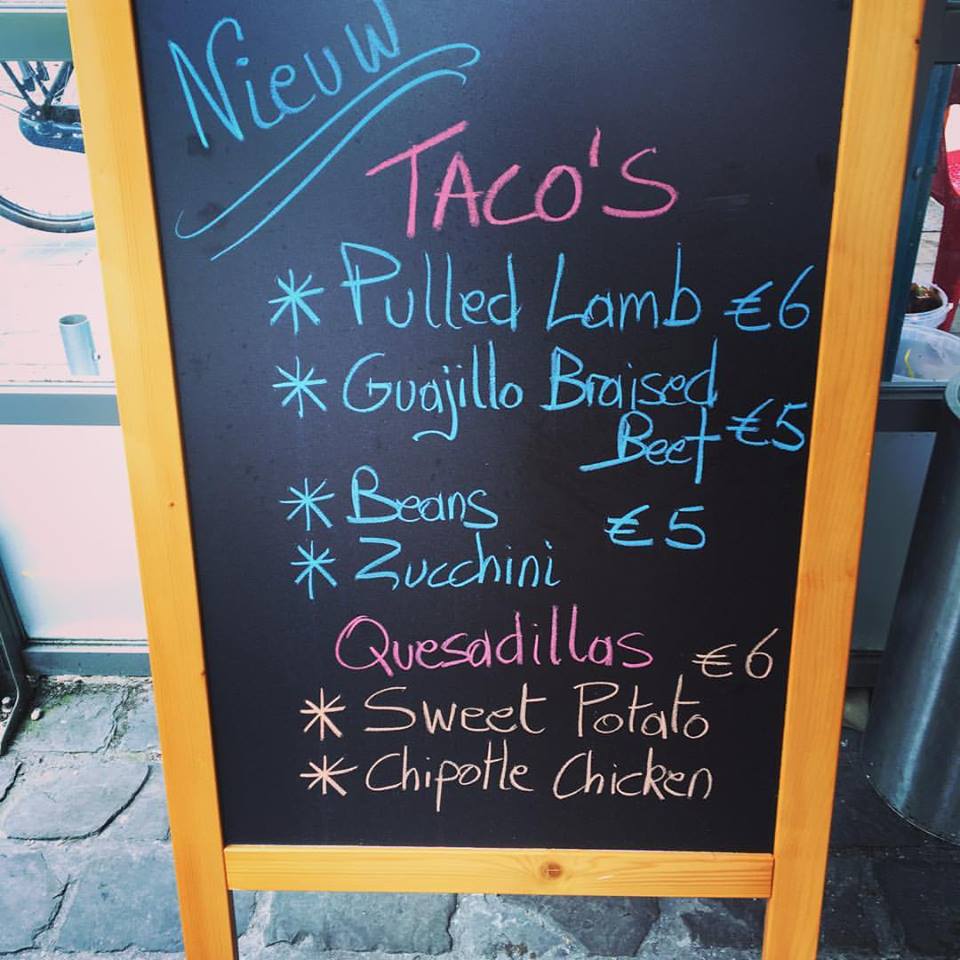 Nieuw
TACO'S
* Pulled Lamb €6
* Guajillo Braised
Beef €5
* Beans €5
* Zucchini
Quesadillas €6
* Sweet Potato
* Chipotle Chicken